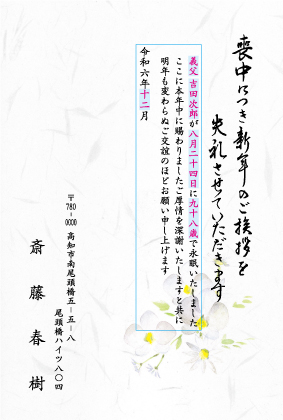 喪中につき新年のご挨拶を
失礼させていただきます
義父 吉田次郎が八月二十四日に九十八歳で永眠いたしました
ここに本年中に賜わりましたご厚情を深謝いたしますと共に
明年も変わらぬご交誼のほどお願い申し上げます
令和六年十二月
〒780-0000 高知市南尾頭橋五-五-八
尾頭橋ハイツ八〇四
斎藤春樹